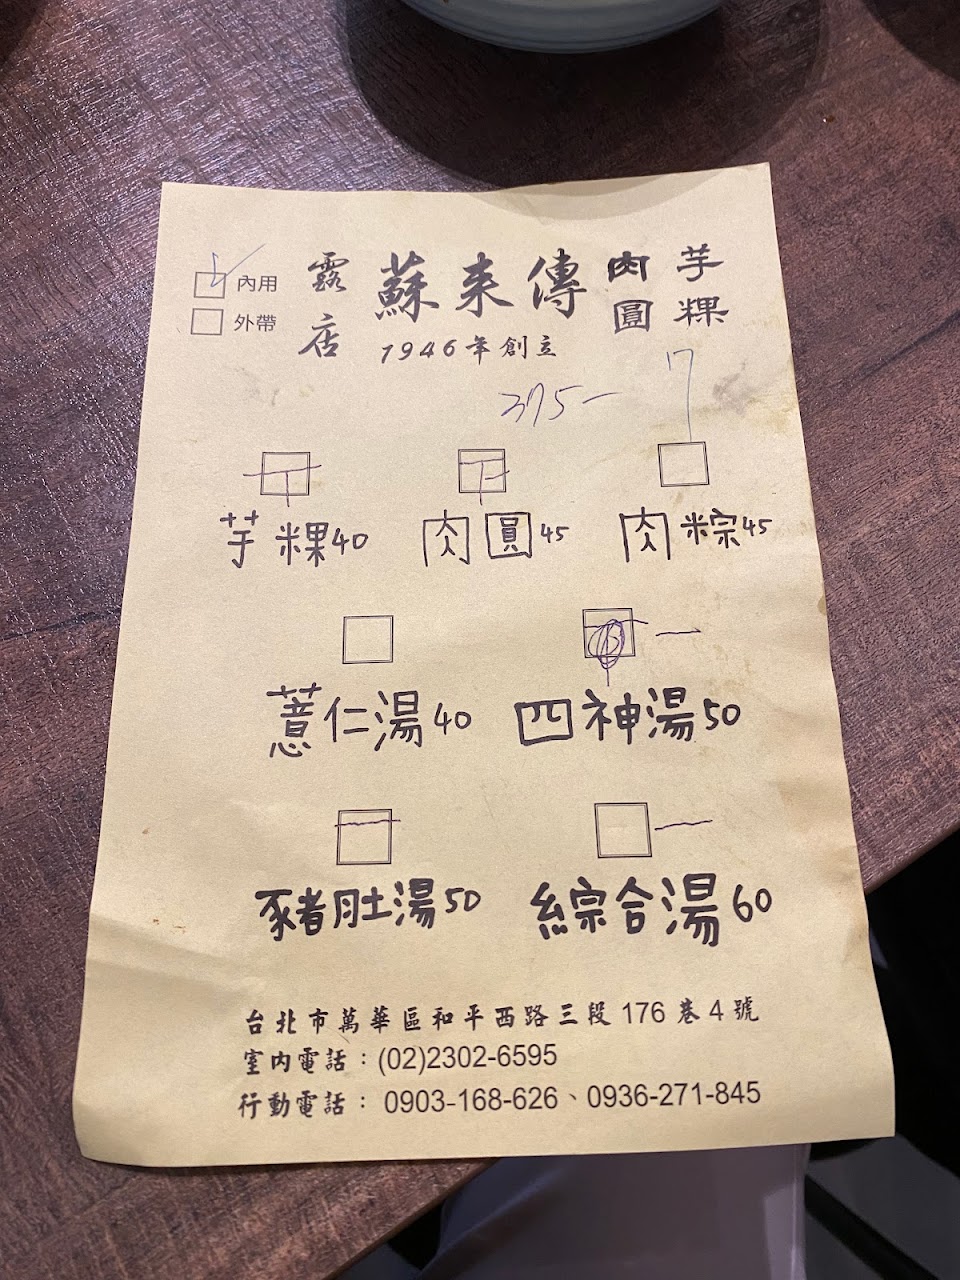 內用
外帶
露店
蘇来傳
肉圓
芋粿
1946年創立
375-
17
芋粿40
肉圓45
肉粽45
薏仁湯40
四神湯50
豬肚湯50
綜合湯60
台北市萬華區和平西路三段176巷4號
室內電話：(02)2302-6595
行動電話：0903-168-626、0936-271-845